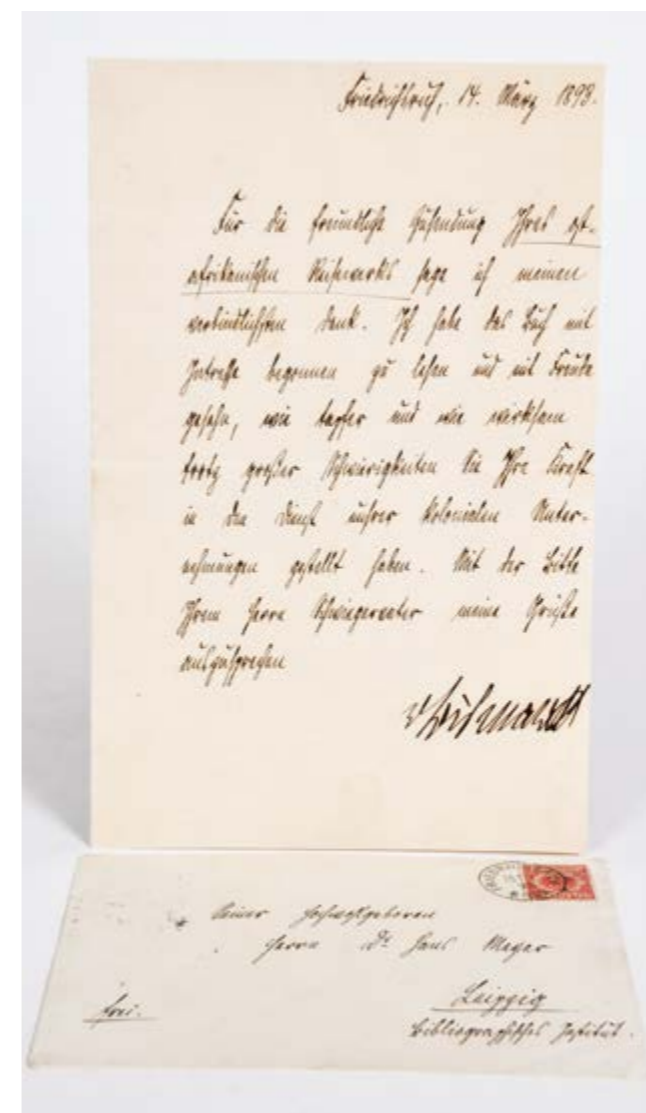 Friedrichsruh, 14. März 1893.
Für die freundliche Zusendung Ihres ost-
afrikanischen Reisewerks sage ich meinen
verbindlichsten Dank. Ich habe das Buch mit
Intresse begonnen zu lesen und mit Freude
gesehn, wie tapfer und wie wirksam
trotz großer Schwierigkeiten Sie Ihre Kraft
in den Dienst unsrer kolonialen Unter-
nehmungen gestellt haben. Mit der Bitte
Ihrem Herrn Schwiegervater meine Grüße
auszusprechen
v Bismarck
Seiner Hochwohlgeboren
Herrn Dr Hans Meyer
Leipzig
frei.
Bibliographisches Institut.